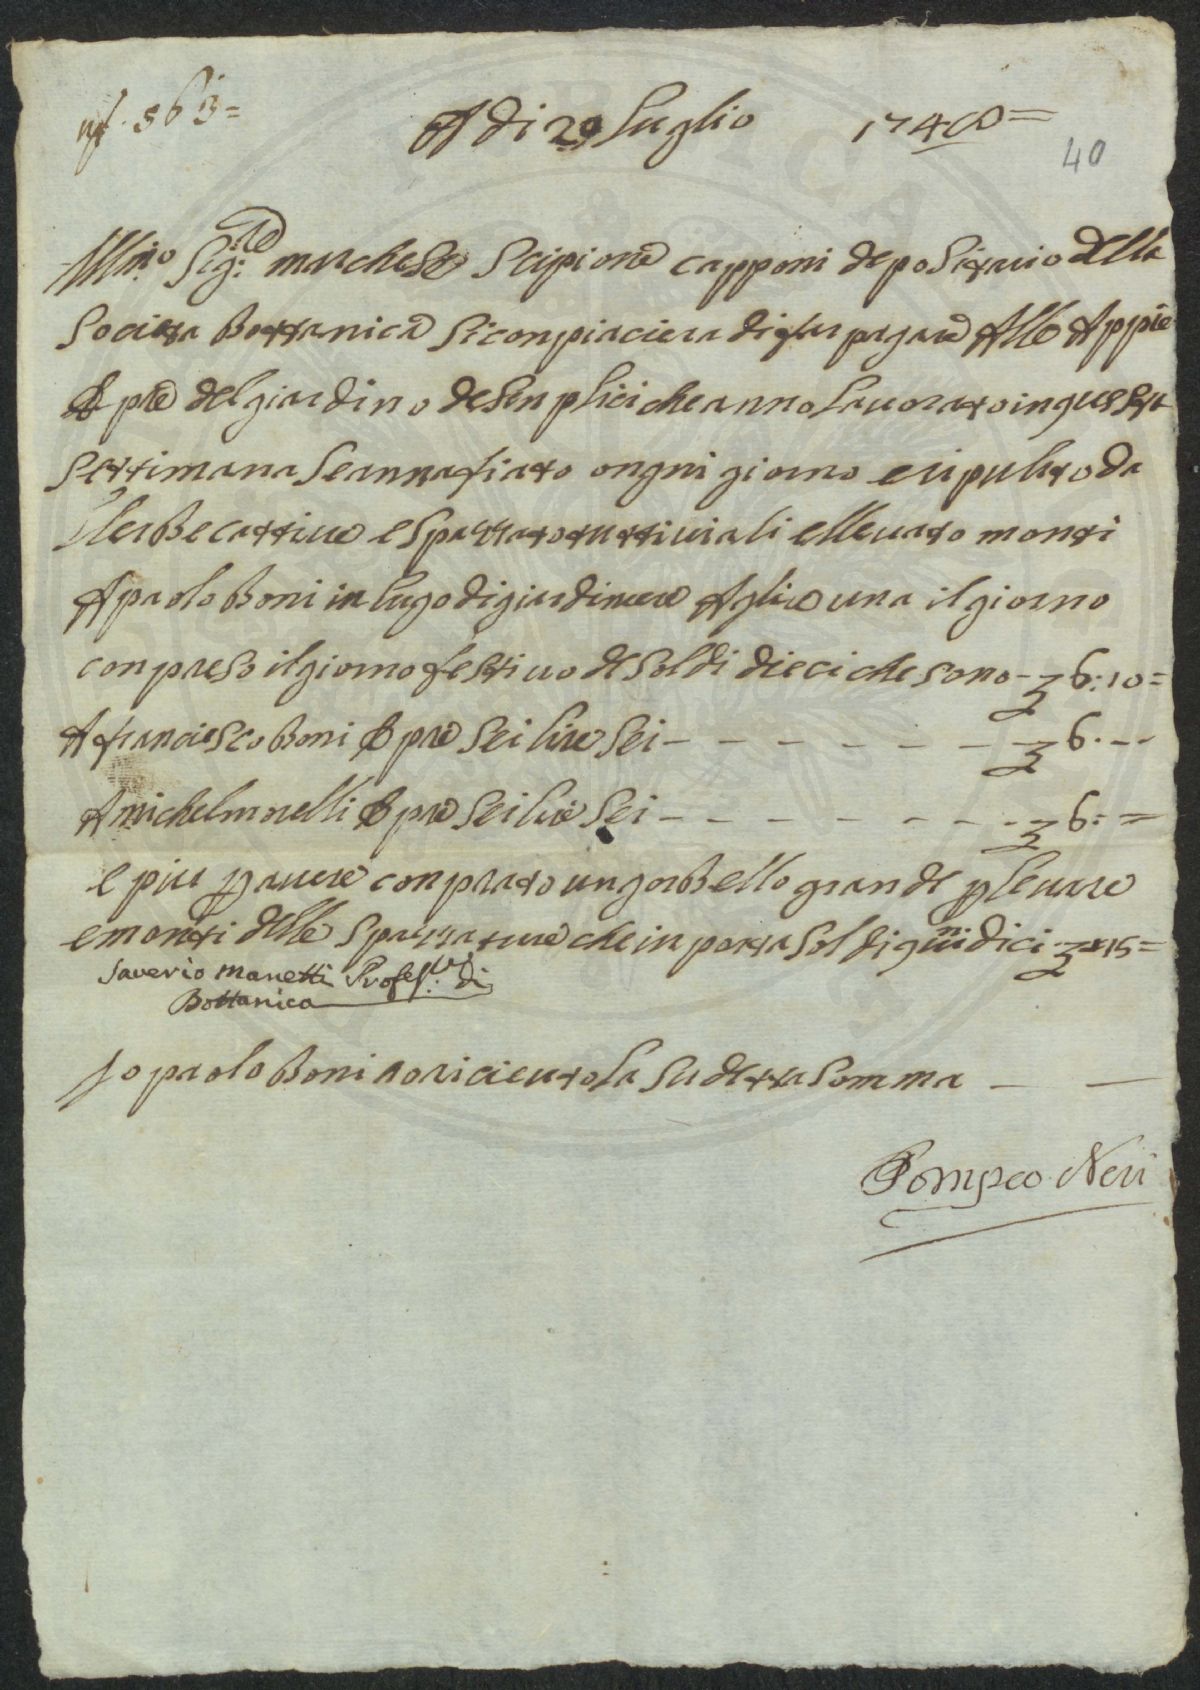 563=
A di 29 Luglio 1748=
40
Illmo Sig:re marchese Scipione capponi depositario della
Societta Bottanica si conpiaciera di far pagare Alle Appie
Opre del giardino de senplici che anno Lauorato in questa
settimana se annafiato ongni giorno e ripulito da
Ierbe cattiue e spazzato tutti uiali elleuato monti
A paolo Boni in lugo di giardiniere A glire una il giorno
conpreso il giorno festiuo de soldi dieci che sono - £ 6:10=
A franciesco Boni Opre sei lire sei - - - - - - - £ 6. --
A michel morelli Opre sei lire sei - - - - - - - £ 6: =
e piu p auere conprato un gorbello grande p leuare
e monti delle spazzature che in porta soldi quindici £ =15=
Saverio Manetti Profess:re di
Bottanica
Io paolo Boni o riceuto La sudetta somma — —
Pompeo Neri